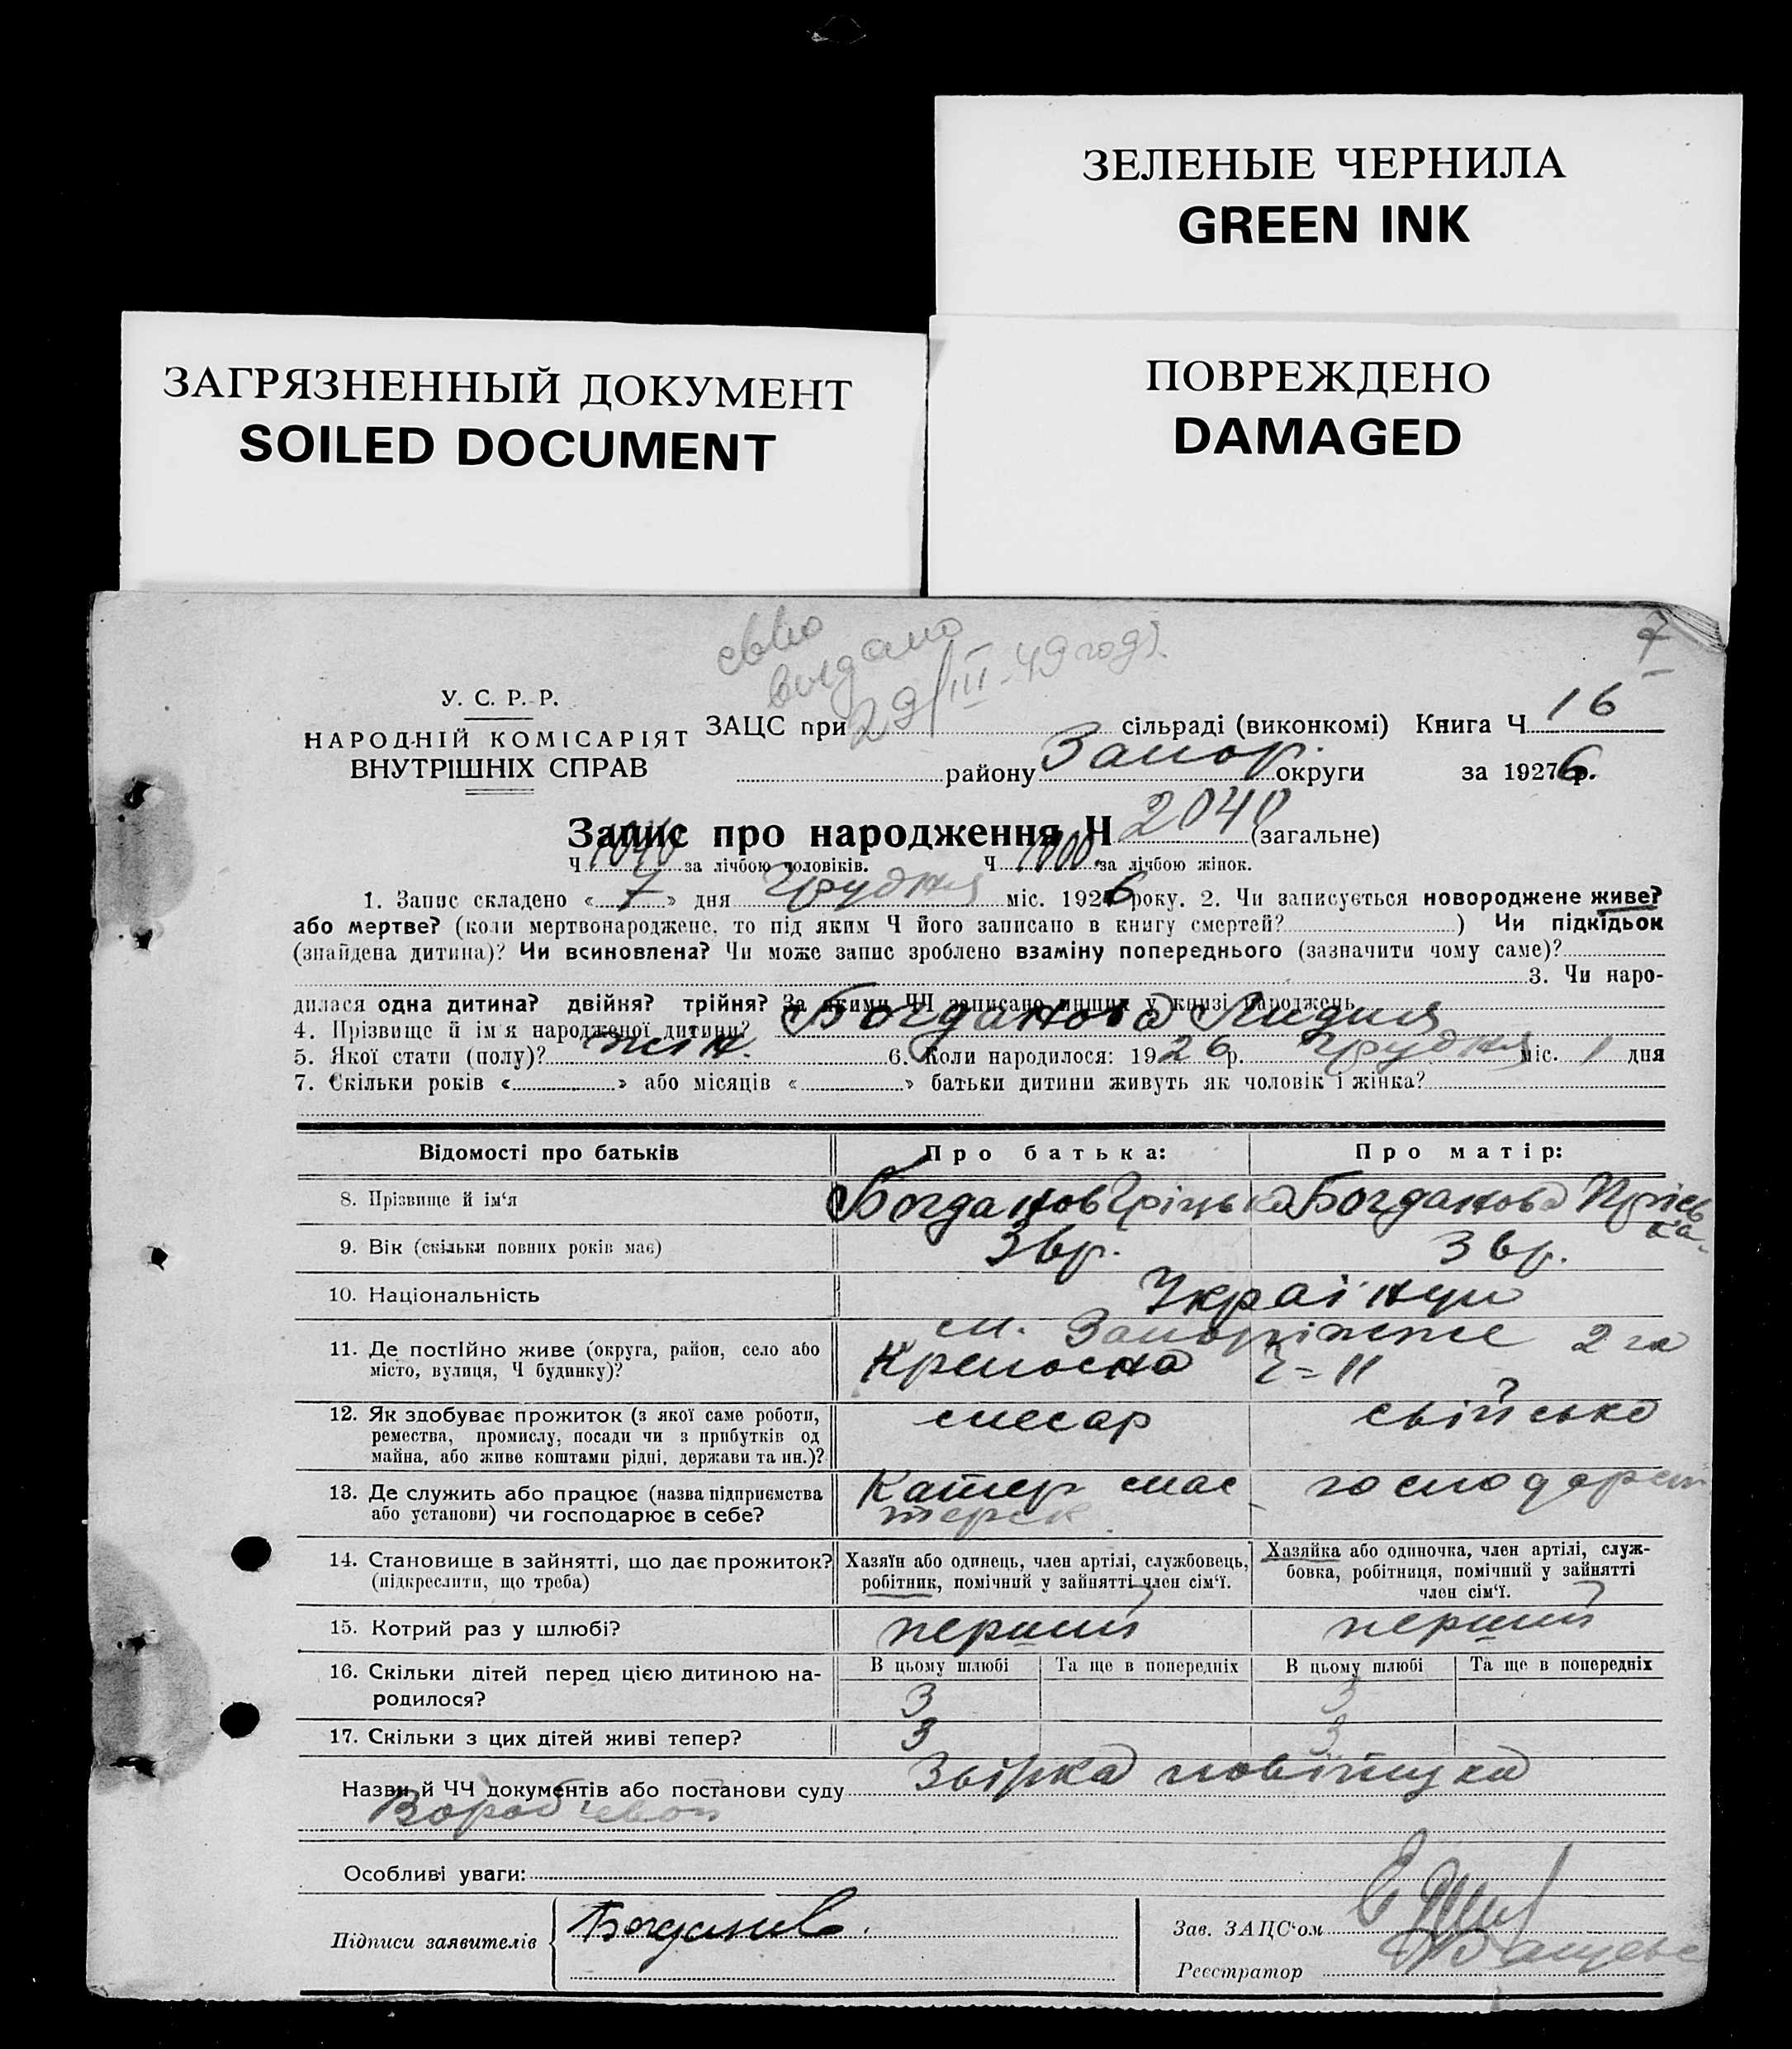 ЗЕЛЕНЫЕ ЧЕРНИЛА
GREEN INK
ЗАГРЯЗНЕННЫЙ ДОКУМЕНТ
SOILED DOCUMENT
ПОВРЕЖДЕНО
DAMAGED
7
св-во
выдано
29/III-49 году
У. С. Р. Р.
НАРОДНІЙ КОМІСАРІЯТ
ВНУТРІШНІХ СПРАВ
ЗАЦС при сільраді (виконкомі) Книга Ч 16
району Запор. округи за 1926 р.
Запис про народження Ч 2040 (загальне)
Ч 1040 за лічбою чоловіків. Ч 1000 за лічбою жінок.
1. Запис складено « 7 » дня Грудня міс. 1926 року. 2. Чи записується новороджене живе?
або мертве? (коли мертвонароджене, то під яким Ч його записано в книгу смертей? ) Чи підкідьок
(знайдена дитина)? Чи всиновлена? Чи може запис зроблено взаміну попереднього (зазначити чому саме)?
3. Чи наро-
дилася одна дитина? двійня? трійня? За якими ЧЧ записано инших у книзі народжень
4. Прізвище й ім'я народженої дитини? Богданова Лидия
5. Якої стати (полу)? жін. 6. Коли народилося: 1926 р. Грудня міс. 1 дня
7. Скільки років « » або місяців « » батьки дитини живуть як чоловік і жінка?
Відомості про батьків Про батька: Про матір:
8. Прізвище й ім'я Богданов Гріцько Богданова Прісь
ка
9. Вік (скільки повних років має) 36 р. 36 р.
10. Національність Українци
11. Де постійно живе (округа, район, село або м. Запоріжже 2 га
місто, вулиця, Ч будинку)? Крепосна Ч = 11
12. Як здобуває прожиток (з якої саме роботи, слесар свійське
ремества, промислу, посади чи з прибутків од
майна, або живе коштами рідні, держави та ин.)?
13. Де служить або працює (назва підприємства Катер мас господарст
або установи) чи господарює в себе? терск
14. Становище в зайнятті, що дає прожиток? Хазяїн або одинець, член артілі, службовець, Хазяйка або одиночка, член артілі, служ-
(підкреслити, що треба) робітник, помічний у зайнятті член сім'ї. бовка, робітниця, помічний у зайнятті
член сім'ї.
15. Котрий раз у шлюбі? перший перший
16. Скільки дітей перед цією дитиною на- В цьому шлюбі Та ще в попередніх В цьому шлюбі Та ще в попередніх
родилося? 3 3
17. Скільки з цих дітей живі тепер? 3 3
Назви й ЧЧ документів або постанови суду Звірка повітухи
Воробйевой
Особливі уваги:
Підписи заявителів Богданов.
Зав. ЗАЦС'ом
Реєстратор